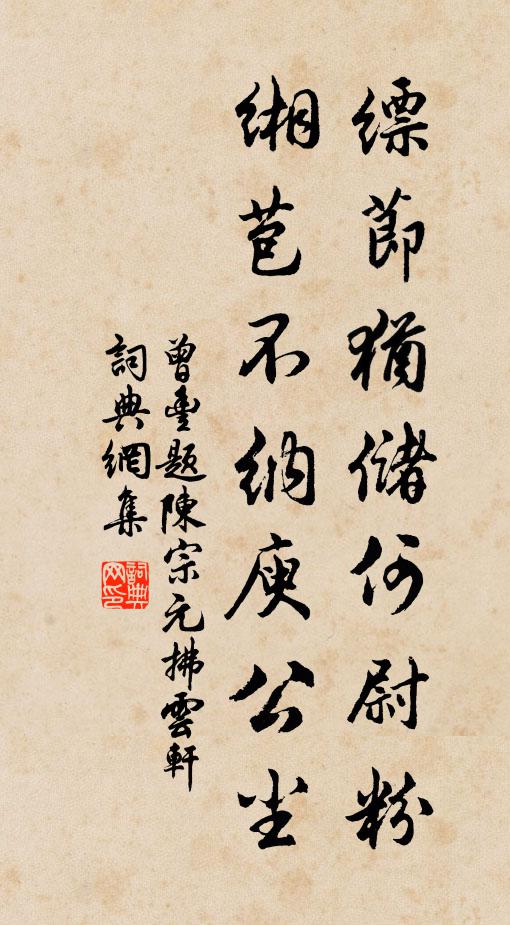 縹節猶儲何尉粉
緗苞不納庾公尘
曾豐題陳宗元拂雲軒
詞典網集
詞典网印